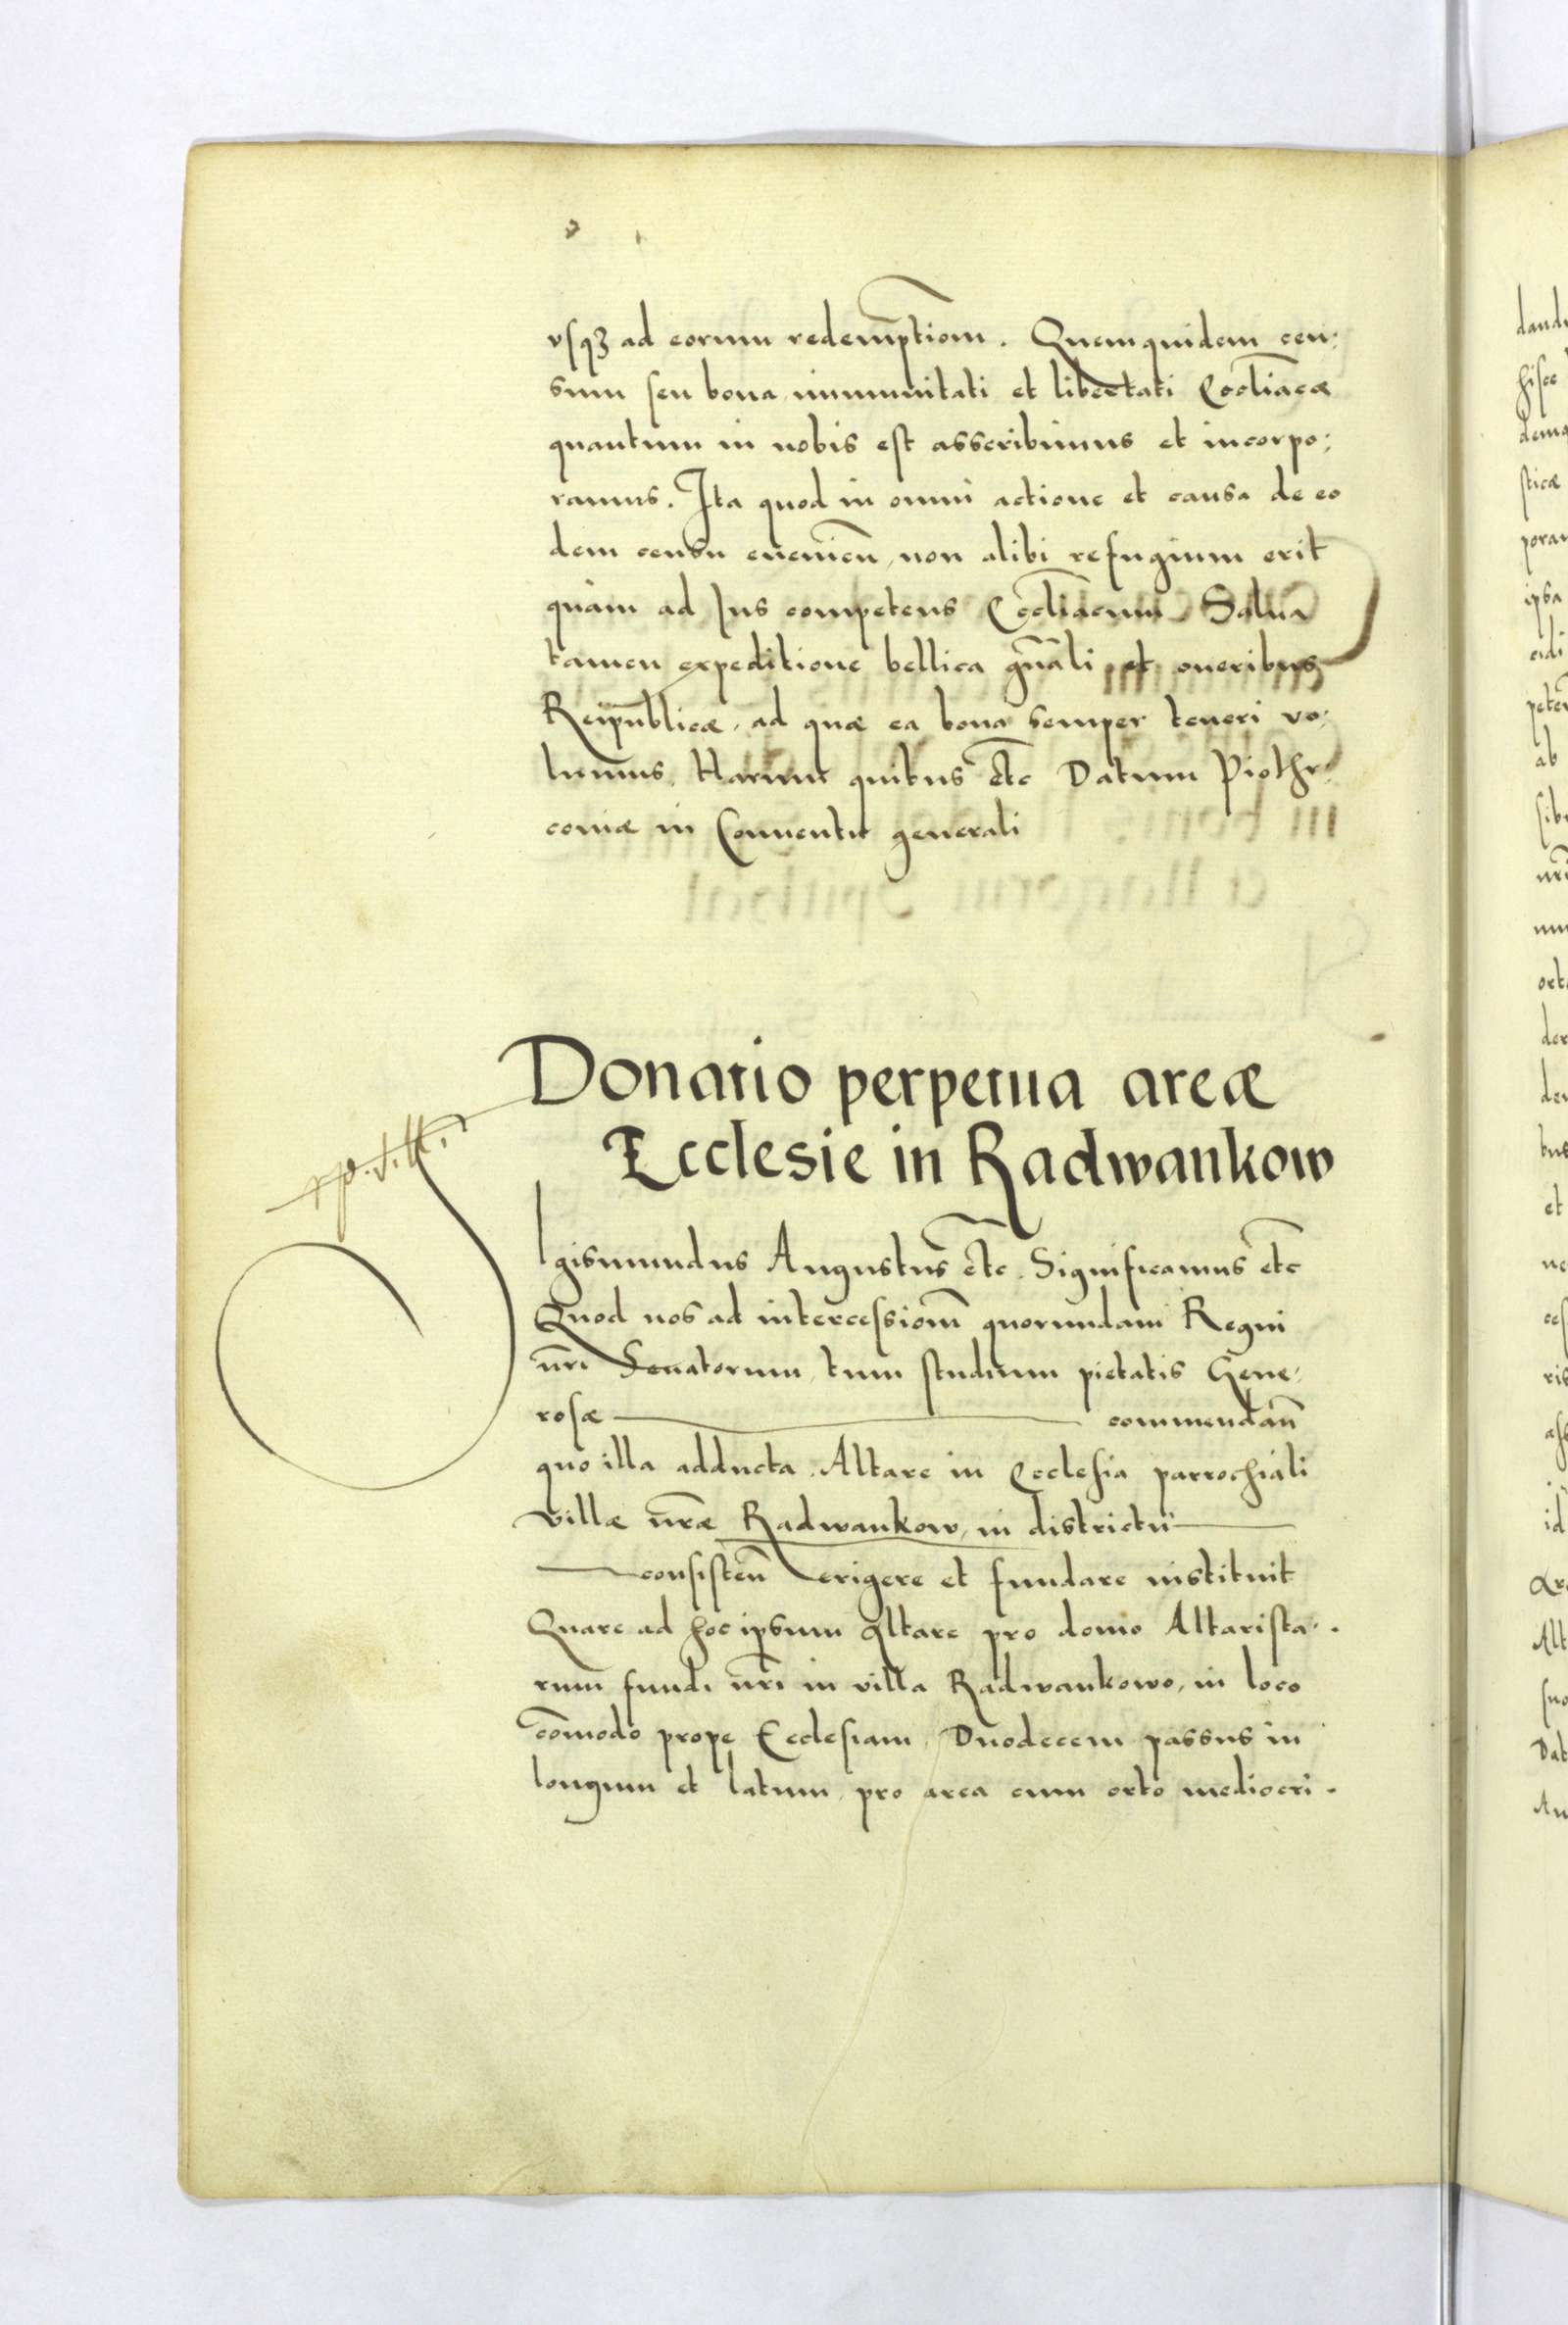 vsqꝫ ad eorum redemptiom̄. Quemquidem cen:
sum seu bona immunitati et libertati Eccl̄iacæ
quantum in nobis est asscribimus et incorpo:
ramus. Ita quod in omni actione et causa de eo
dem censu eueniēn, non alibi refugium erit
quàm ad Jus competens Eccl̄iacum Salua
tamen expeditione bellica gn̄ali et oneribus
Reipublicæ, ad quæ ea bona semper teneri vo:
lumus. Harum quibus etc̄ Datum Piothr:
couiæ in Conuentu generali
Donatio perpetua areæ
Ecclesie in Radwankow
Sigismundus Augustus etc̄. Significamus etc̄
Quod nos ad intercessiom̄ quorundam Regni
nr̄i Senatorum, tum studium pietatis Gene:
rosæ commendan̄
quo illa adducta. Altare in Ecclesia parrochiali
villæ nr̄æ Radwankow, in districtu
consisten̄ erigere et fundare instituit
Quare ad hoc ipsum Altare pro domo Altarista:
rum fundi nr̄i in villa Radwankowo, in loco
com̄odo prope Ecclesiam, Duodecem passus in
longum et latum, pro area cum orto mediocri.